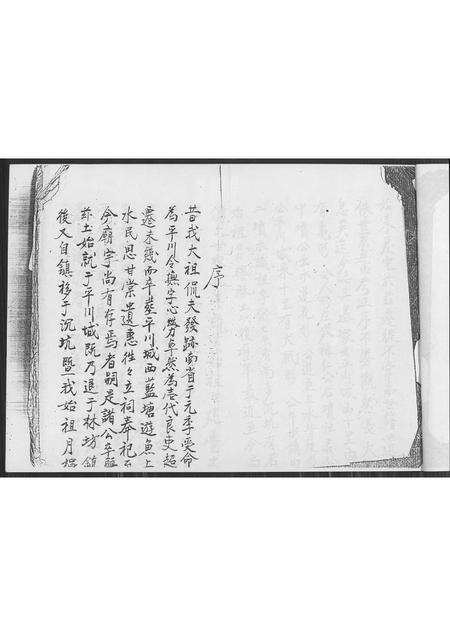 序
昔我大祖侃夫發跡南省于元季受命
為平川令撫字心勞卓然為壱代良吏超
遷未幾而卒塟平川城西藍塘遊魚上
水民思甘棠遺惠徃々立祠奉祀
今廟宇尚有存焉者嗣是諸公卒
土始就于平川城既乃退于林坊鎮
後又自鎮移于沉坑暨我始祖月